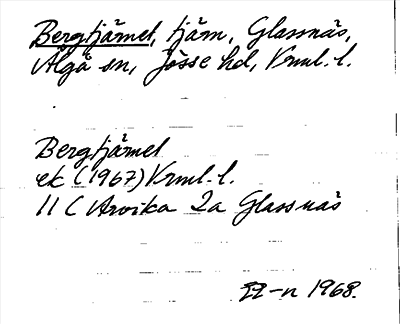 Bergtjärnet, tjärn, Glassnäs,
Älgå sn, Jösse hd, Vrml. l.
Bergtjärnet
ek (1967) Vrml. l.
11 C Arvika 2a Glassnäs
1968.